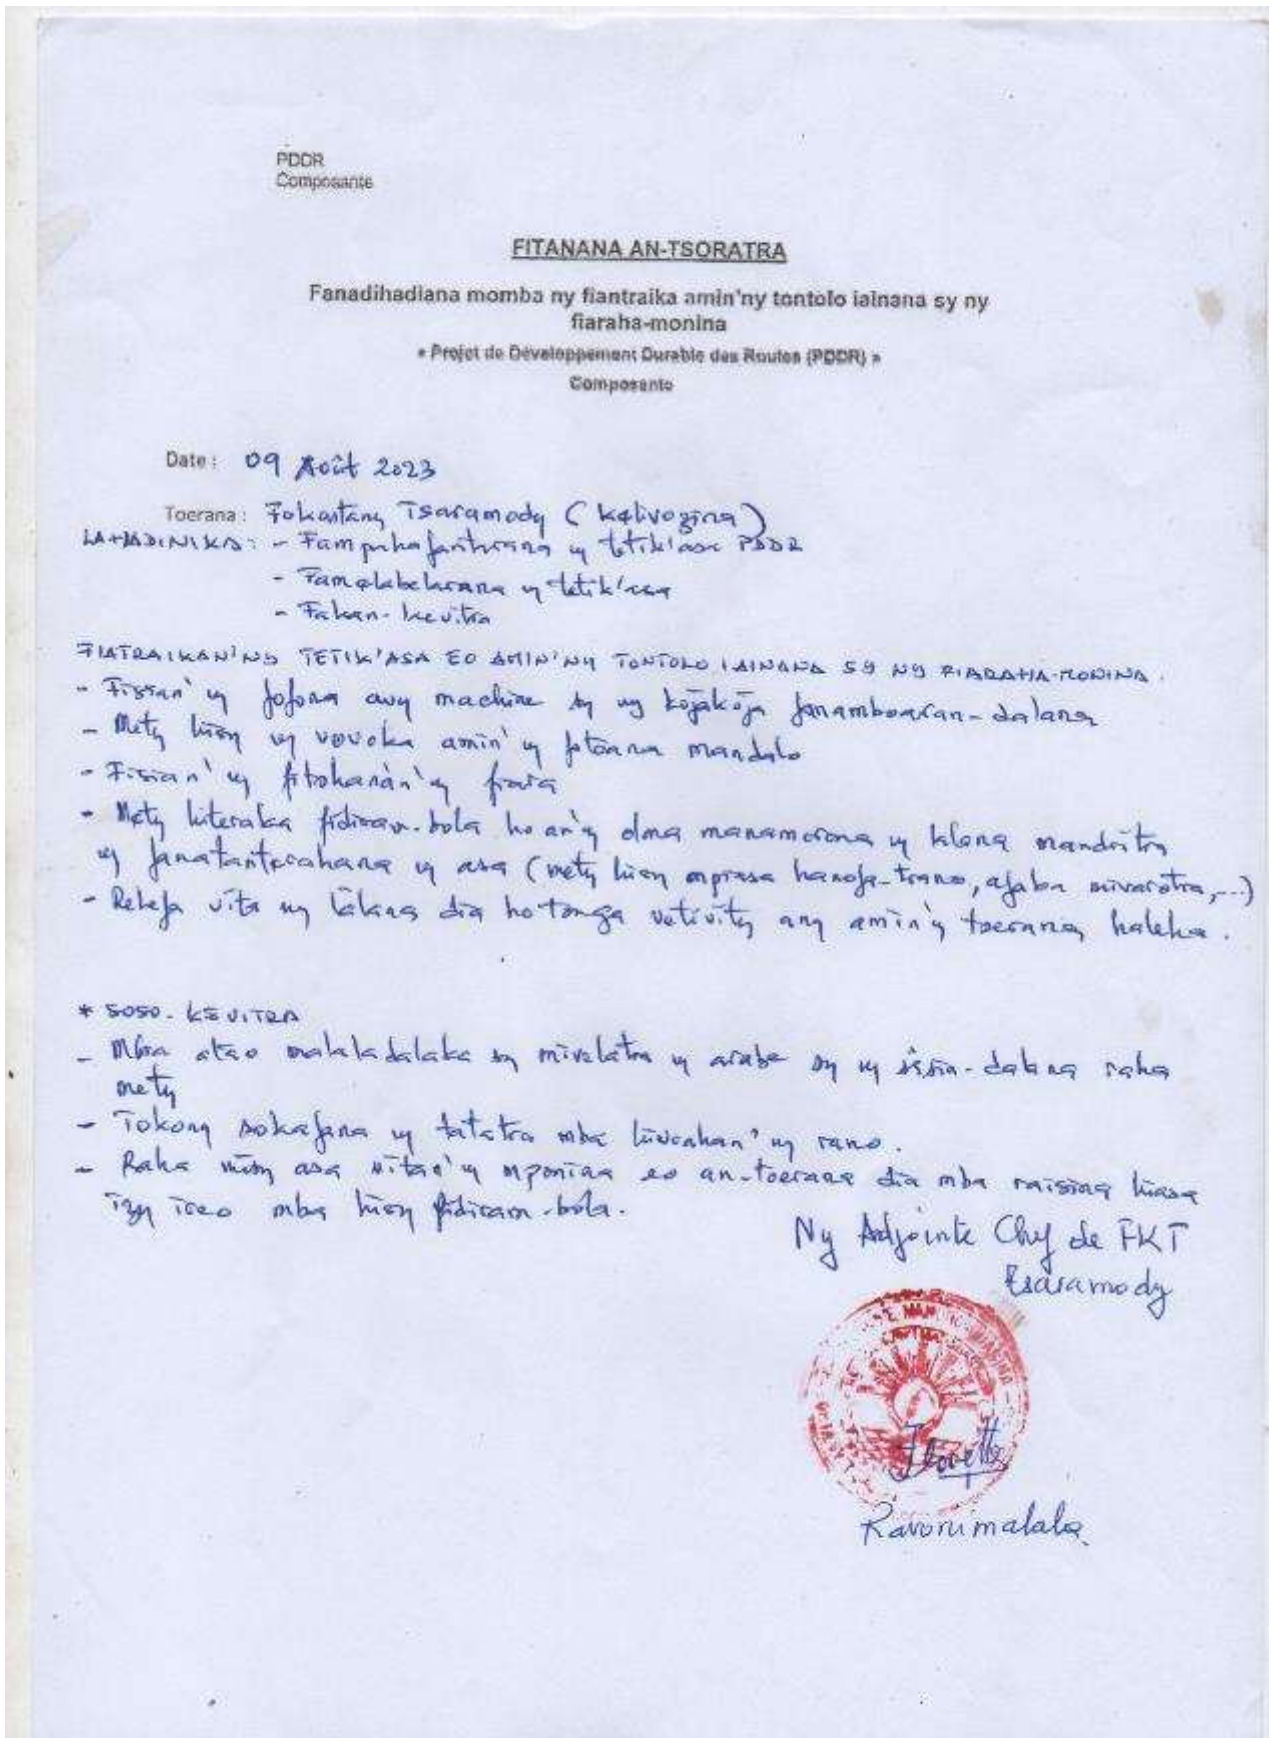 PDDR
Composante
FITANANA AN-TSORATRA
Fanadihadiana momba ny fiantraika amin'ny tontolo iainana sy ny
fiaraha-monina
« Projet de Développement Durable des Routes (PDDR) »
Composante
Date : 09 Août 2023
Toerana : Fokontany Tsaramody (Kelivozina)
LAHADINIKA : - Fampahafantarana ny tetik'asa PDDR
- Famelabelarana ny tetik'asa
- Fakan-kevitra
FIATRAIKAN'NY TETIK'ASA EO AMIN'NY TONTOLO IAINANA SY NY FIARAHA-MONINA.
- Fisian'ny fofona avy machine sy ny kojakoja fanamboaran-dalana
- Mety hisy ny vovoka amin'ny fotoana mandalo
- Fisian'ny fitohanan'ny fiara
- Mety hiteraka fidiram-bola ho an'ny olona manamorona ny lalana mandritra
ny fanatanterahana ny asa (mety hisy mpiasa hanofa-trano, afaka mivarotra,...)
- Rehefa vita ny lalana dia ho tonga vetivety any amin'ny toerana haleha.
* SOSO-KEVITRA
- Mba atao malaladalaka sy mivelatra ny arabe sy ny sisin-dalana raha
mety
- Tokony sokafana ny tatatra mba hivoahan'ny rano.
- Raha misy asa vitan'ny mponina eo an-toerana dia mba raisina hiasa
izy ireo mba hisy fidiram-bola.
Ny Adjointe Chef de FKT
Tsaramody
Ravonimalala